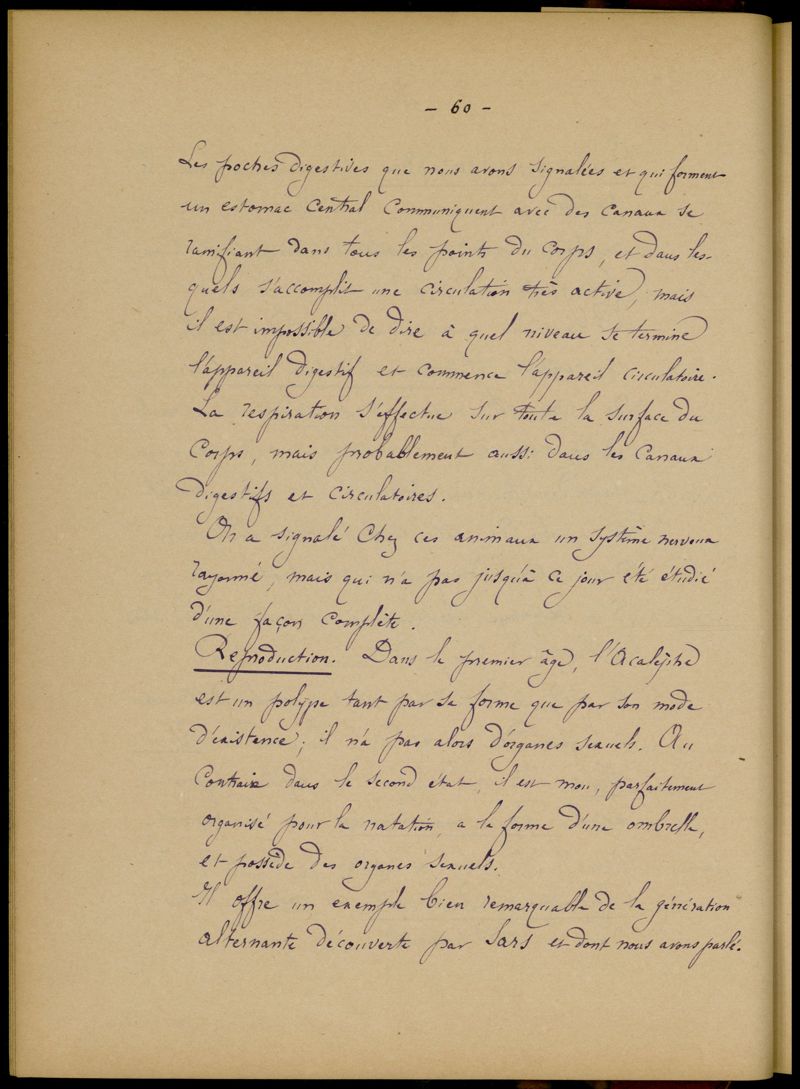 - 60 -
Les poches digestives que nous avons signalées et qui forment
un estomac central communiquent avec des canaux se
ramifiant dans tous les points du corps, et dans les-
quels s'accomplit une circulation très active, mais
il est impossible de dire à quel niveau se termine
l'appareil digestif et commence l'appareil circulatoire.
La respiration s'effectue sur toute la surface du
corps, mais probablement aussi dans les canaux
digestifs et circulatoires.
On a signalé chez ces animaux un système nerveux
rayonné, mais qui n'a pas jusqu'à ce jour été étudié
d'une façon complète.
Reproduction. Dans le premier âge, l'Acalèphe
est un polype tant par sa forme que par son mode
d'existence; il n'a pas alors d'organes sexuels. Au
contraire dans le second état, il est mou, parfaitement
organisé pour la natation, a la forme d'une ombrelle,
et possède des organes sexuels.
Il offre un exemple bien remarquable de la génération
alternante découverte par Sars et dont nous avons parlé.